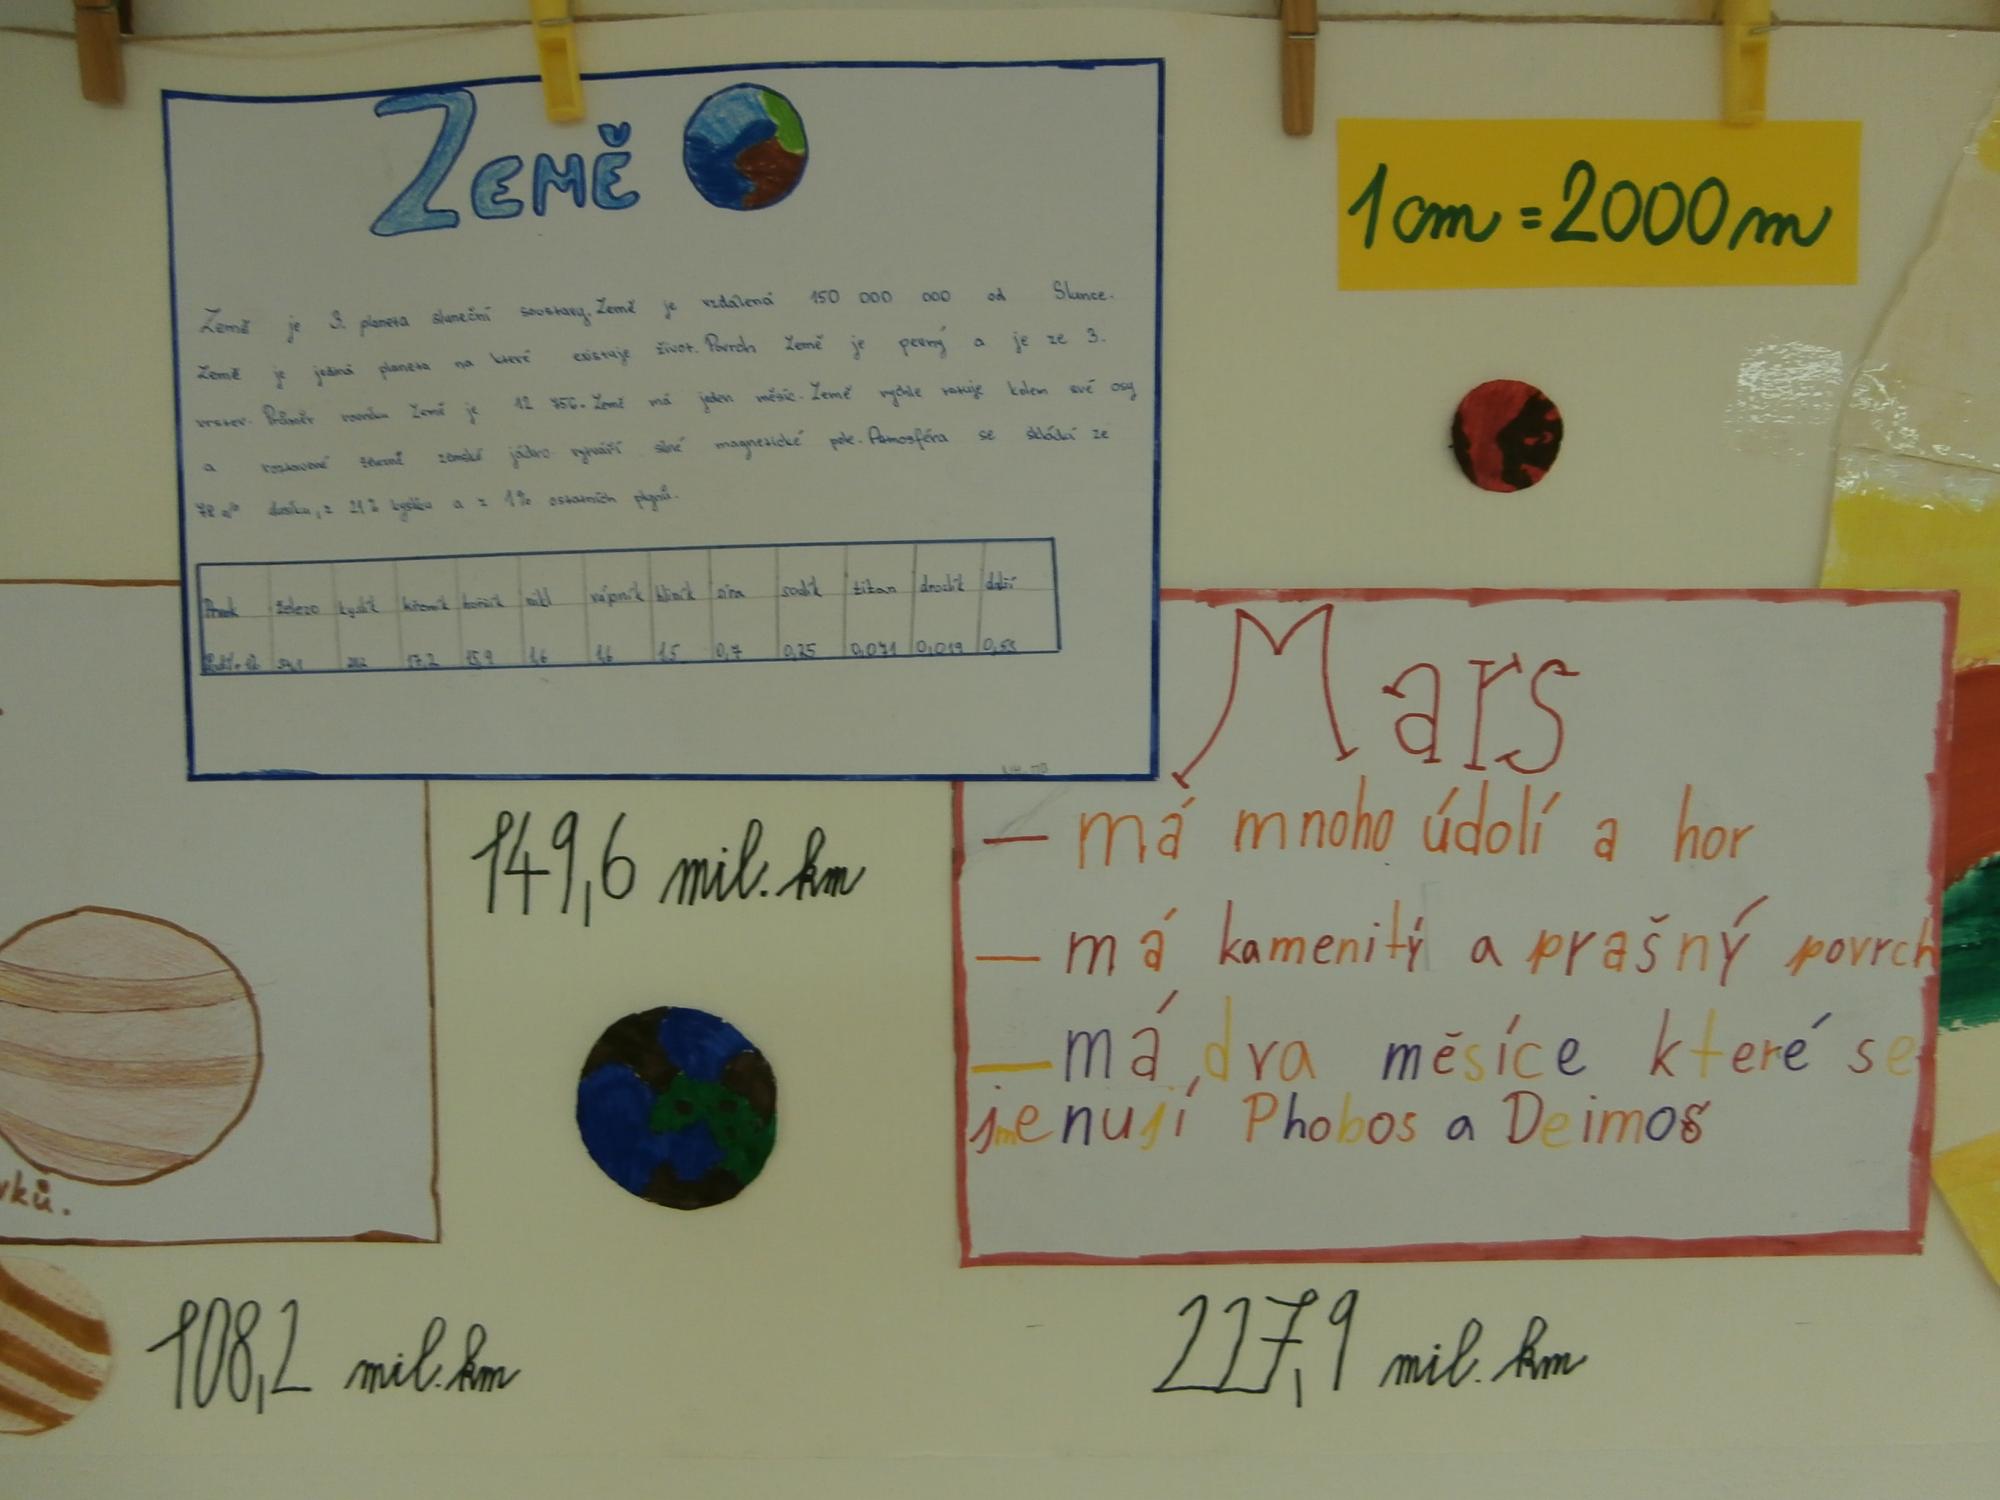 Země
1cm = 2000m
Země je 3. planeta sluneční soustavy. Země je vzdálená 150 000 000 od Slunce.
Země je jediná planeta na které existuje život. Povrch Země je pevný a je ze 3.
vrstev. Průměr rovníku Země je 12 756. Země má jeden měsíc. Země rychle rotuje kolem své osy
a roztavené zemské jádro vytváří silné magnetické pole. Atmosféra se skládá ze
78 % dusíku, z 21% kyslíku a z 1% ostatních plynů.
Prvek železo kyslík křemík hořčík nikl vápník hliník síra sodík titan draslík další
34,1 17,2 15,9 1,6 1,6 1,5 0,7 0,25 0,071 0,019 0,53
Mars
– má mnoho údolí a hor
– má kamenitý a prašný povrch
– má dva měsíce které se
jmenují Phobos a Deimos
149,6 mil. km
vků.
108,2 mil. km
227,9 mil. km